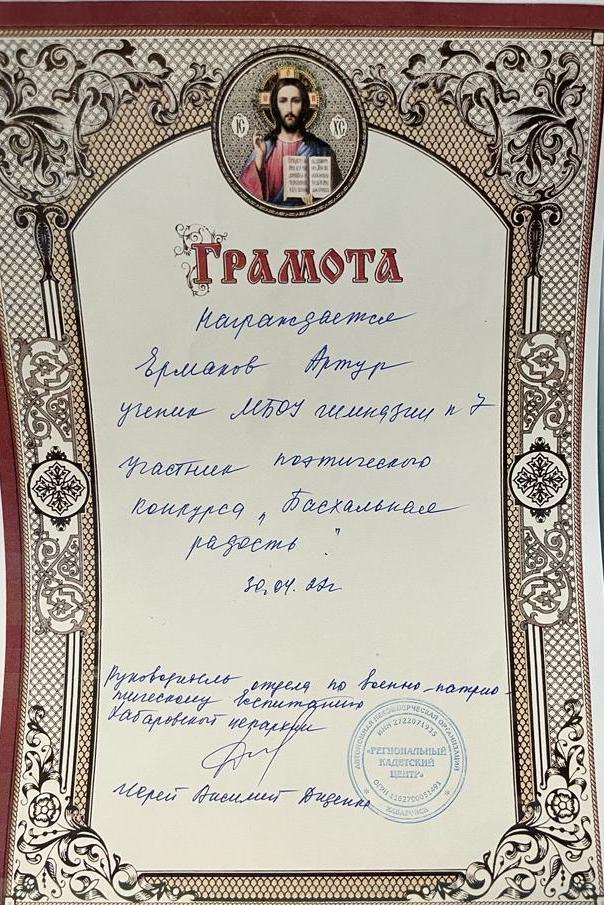 IC
XC
ГРАМОТА
Награждается
Ермаков Артур
ученик МБОУ гимназии n 7
участник поэтического
конкурса „Пасхальная
радость"
30.04.22г
Руководитель отдела по военно-патрио-
тическому воспитанию
Хабаровской иерархии
Иерей Василий Диденко
АВТОНОМНАЯ НЕКОММЕРЧЕСКАЯ ОРГАНИЗАЦИЯ
ИНН 2722071935
«РЕГИОНАЛЬНЫЙ
КАДЕТСКИЙ
ЦЕНТР»
ОГРН 1162700051491
ХАБАРОВСК